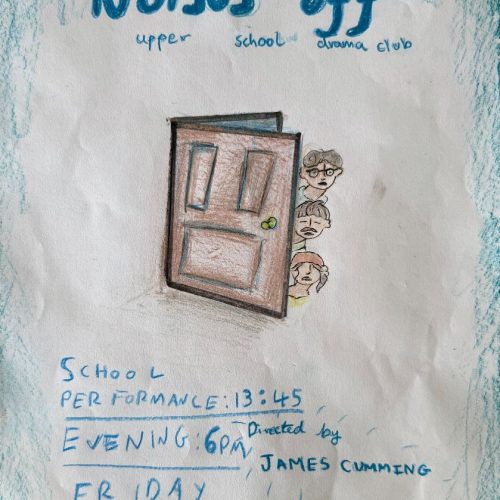 Noises off
upper school drama club
SCHOOL
PERFORMANCE: 13:45
EVENING: 6PM
Directed by
JAMES CUMMING
FRIDAY